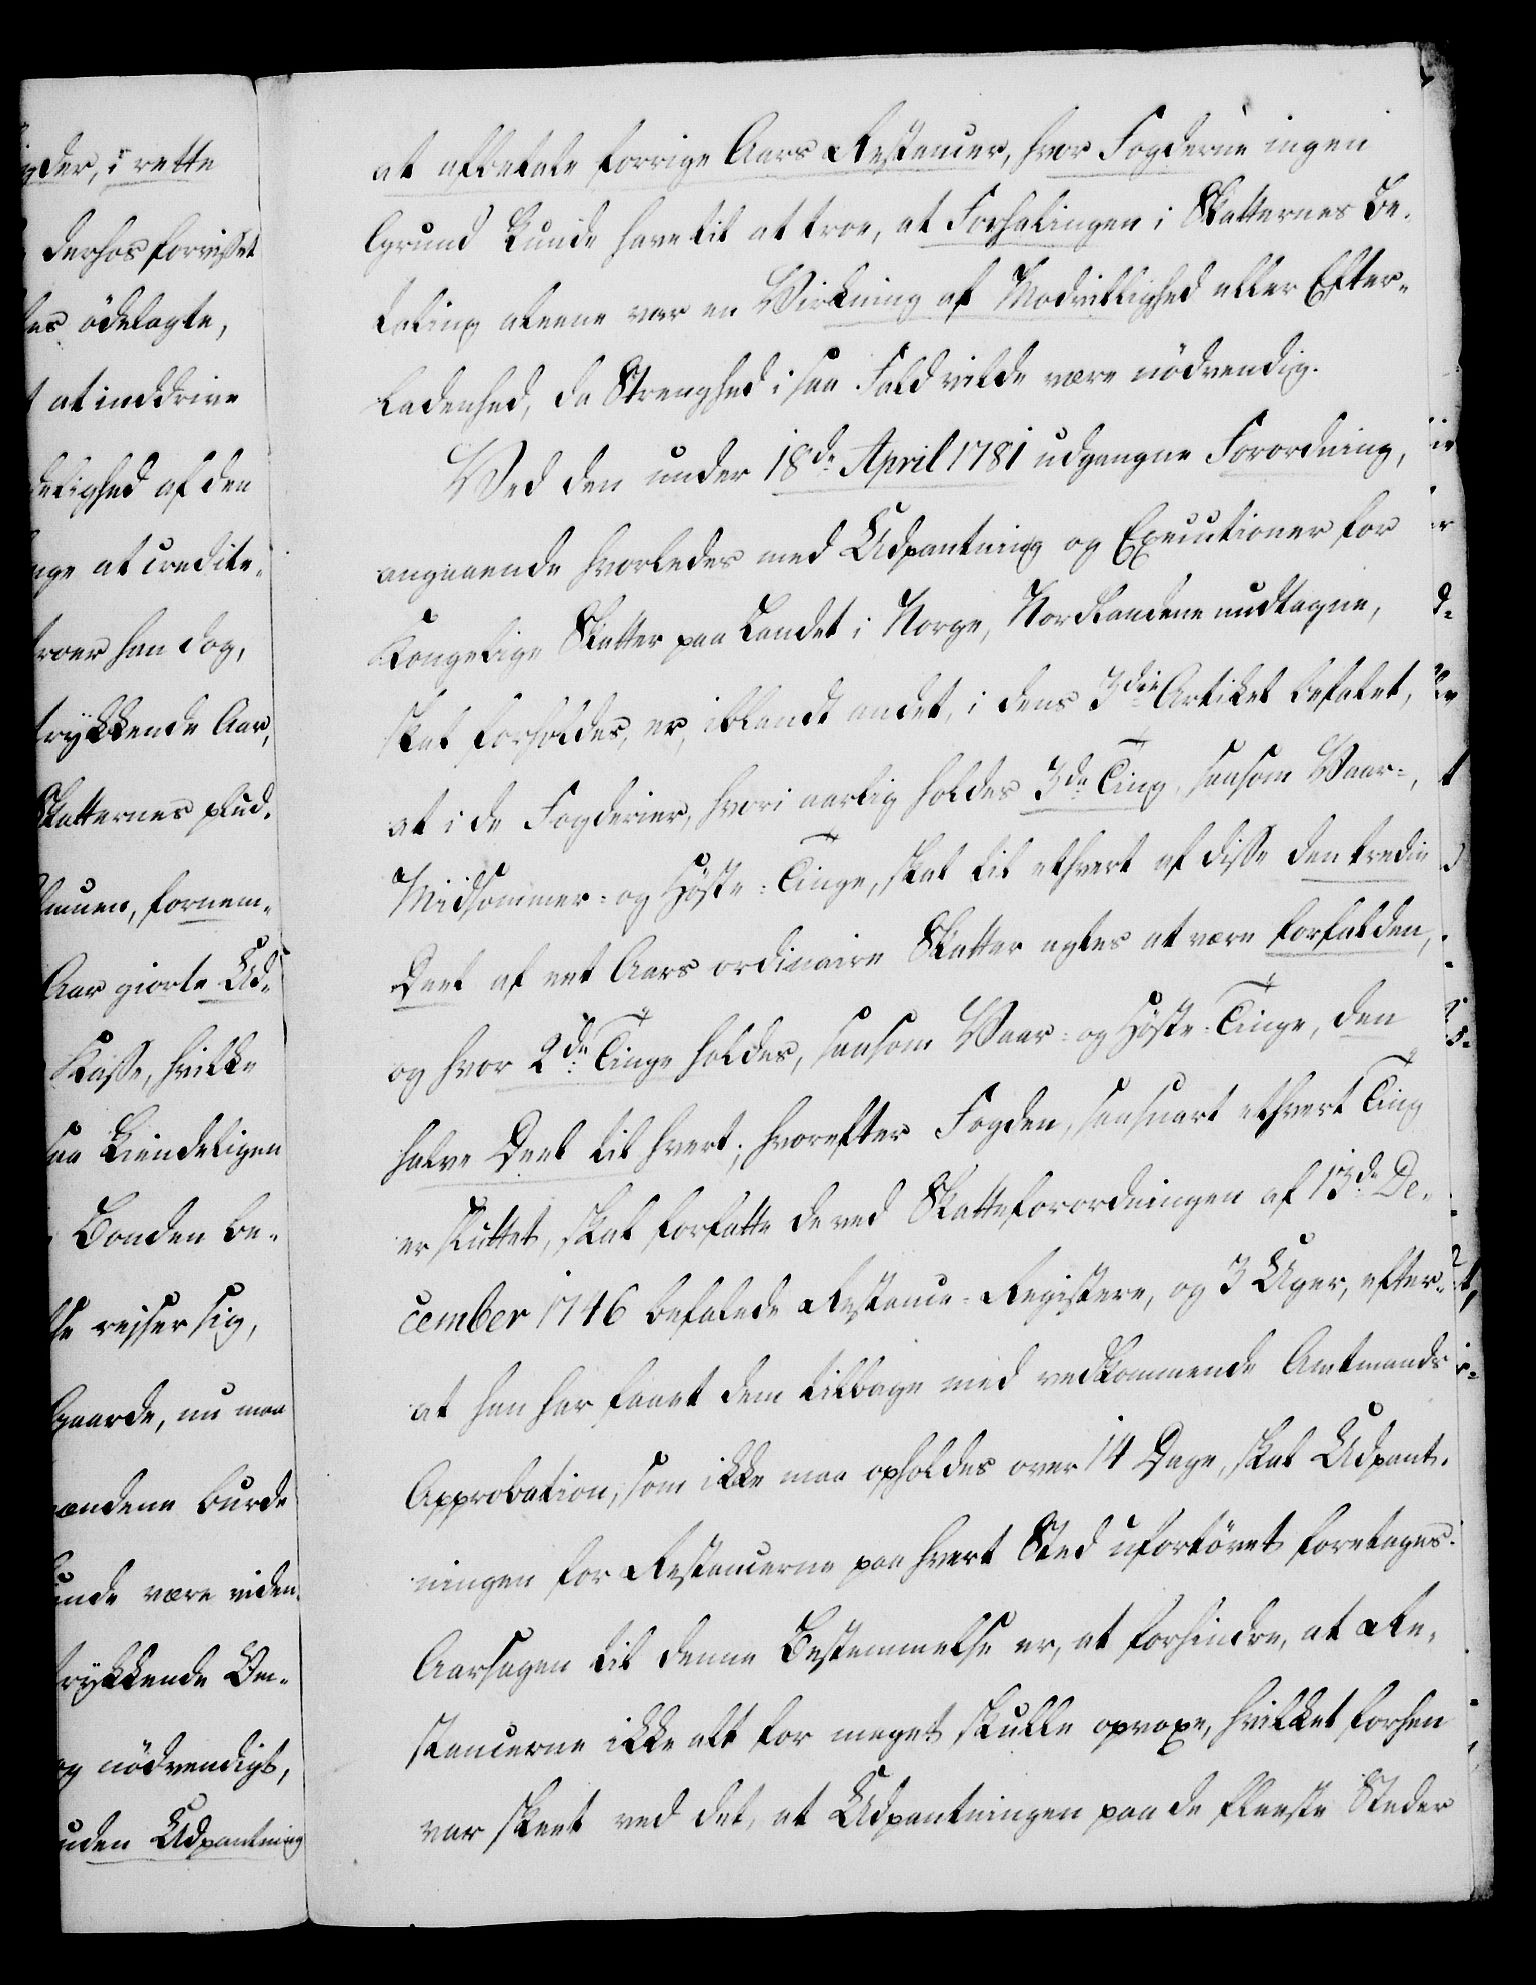 gder, i rette
derhos forvisset
les ödelagte,
at inddrive
delighed af den
nge at credite-
troer han dog,
trykkende Aar,
Skatternes plud-
fornem-
Aar giorte Ud-
Kasse, hvilke
saa kiendeligen
Bonden be-
reiser sig,
Gaarde, nu maa
mændene burde
unde være viden-
trykkende Om-
og nödvendigt,
uden Udpantning
at afbetale forrige Aars Restancer, hvor Fogderne ingen
Grund kunde have til at troe, at Forhalingen i Skatternes Be-
taling aleene var en Virkning af Modvillighed eller Efter-
ladenhed, da Strenghed i saa Fald vilde være nödvendig.
Ved den under 18de April 1781 udgangne Forordning,
angaaende hvorledes med Udpantning og Executioner for
Kongelige Skatter paa Landet i Norge, Nordlandene undtagne,
skal forholdes, er, iblandt andet, i dens 3die Artikel befalet,
at i de Fogderier, hvori aarlig holdes 3de Ting, saasom Vaar-,
Midsommer- og Höste-Tinge, skal til ethvert af disse den tredie
Deel af eet Aars ordinaire Skatter agtes at være forfalden,
og hvor 2de Tinge holdes, saasom Vaar- og Höste-Tinge, den
halve Deel til hvert; hvorefter Fogden, saasnart ethvert Ting
er sluttet, skal forfatte de ved Skatteforordningen af 13de De-
cember 1746 befalede Restance-Registere, og 3 Uger, efter-
at han har faaet dem tilbage med vedkommende Amtmands
Approbation, som ikke maa opholdes over 14 Dage, skal Udpant-
ningen for Restancerne paa hvert Sted ufortövet foretages.
Aarsagen til denne Bestemmelse er, at forhindre, at Re-
stancerne ikke alt for meget skulle opvoxe, hvilket forhen
var skeet ved det, at Udpantningen paa de fleeste Steder